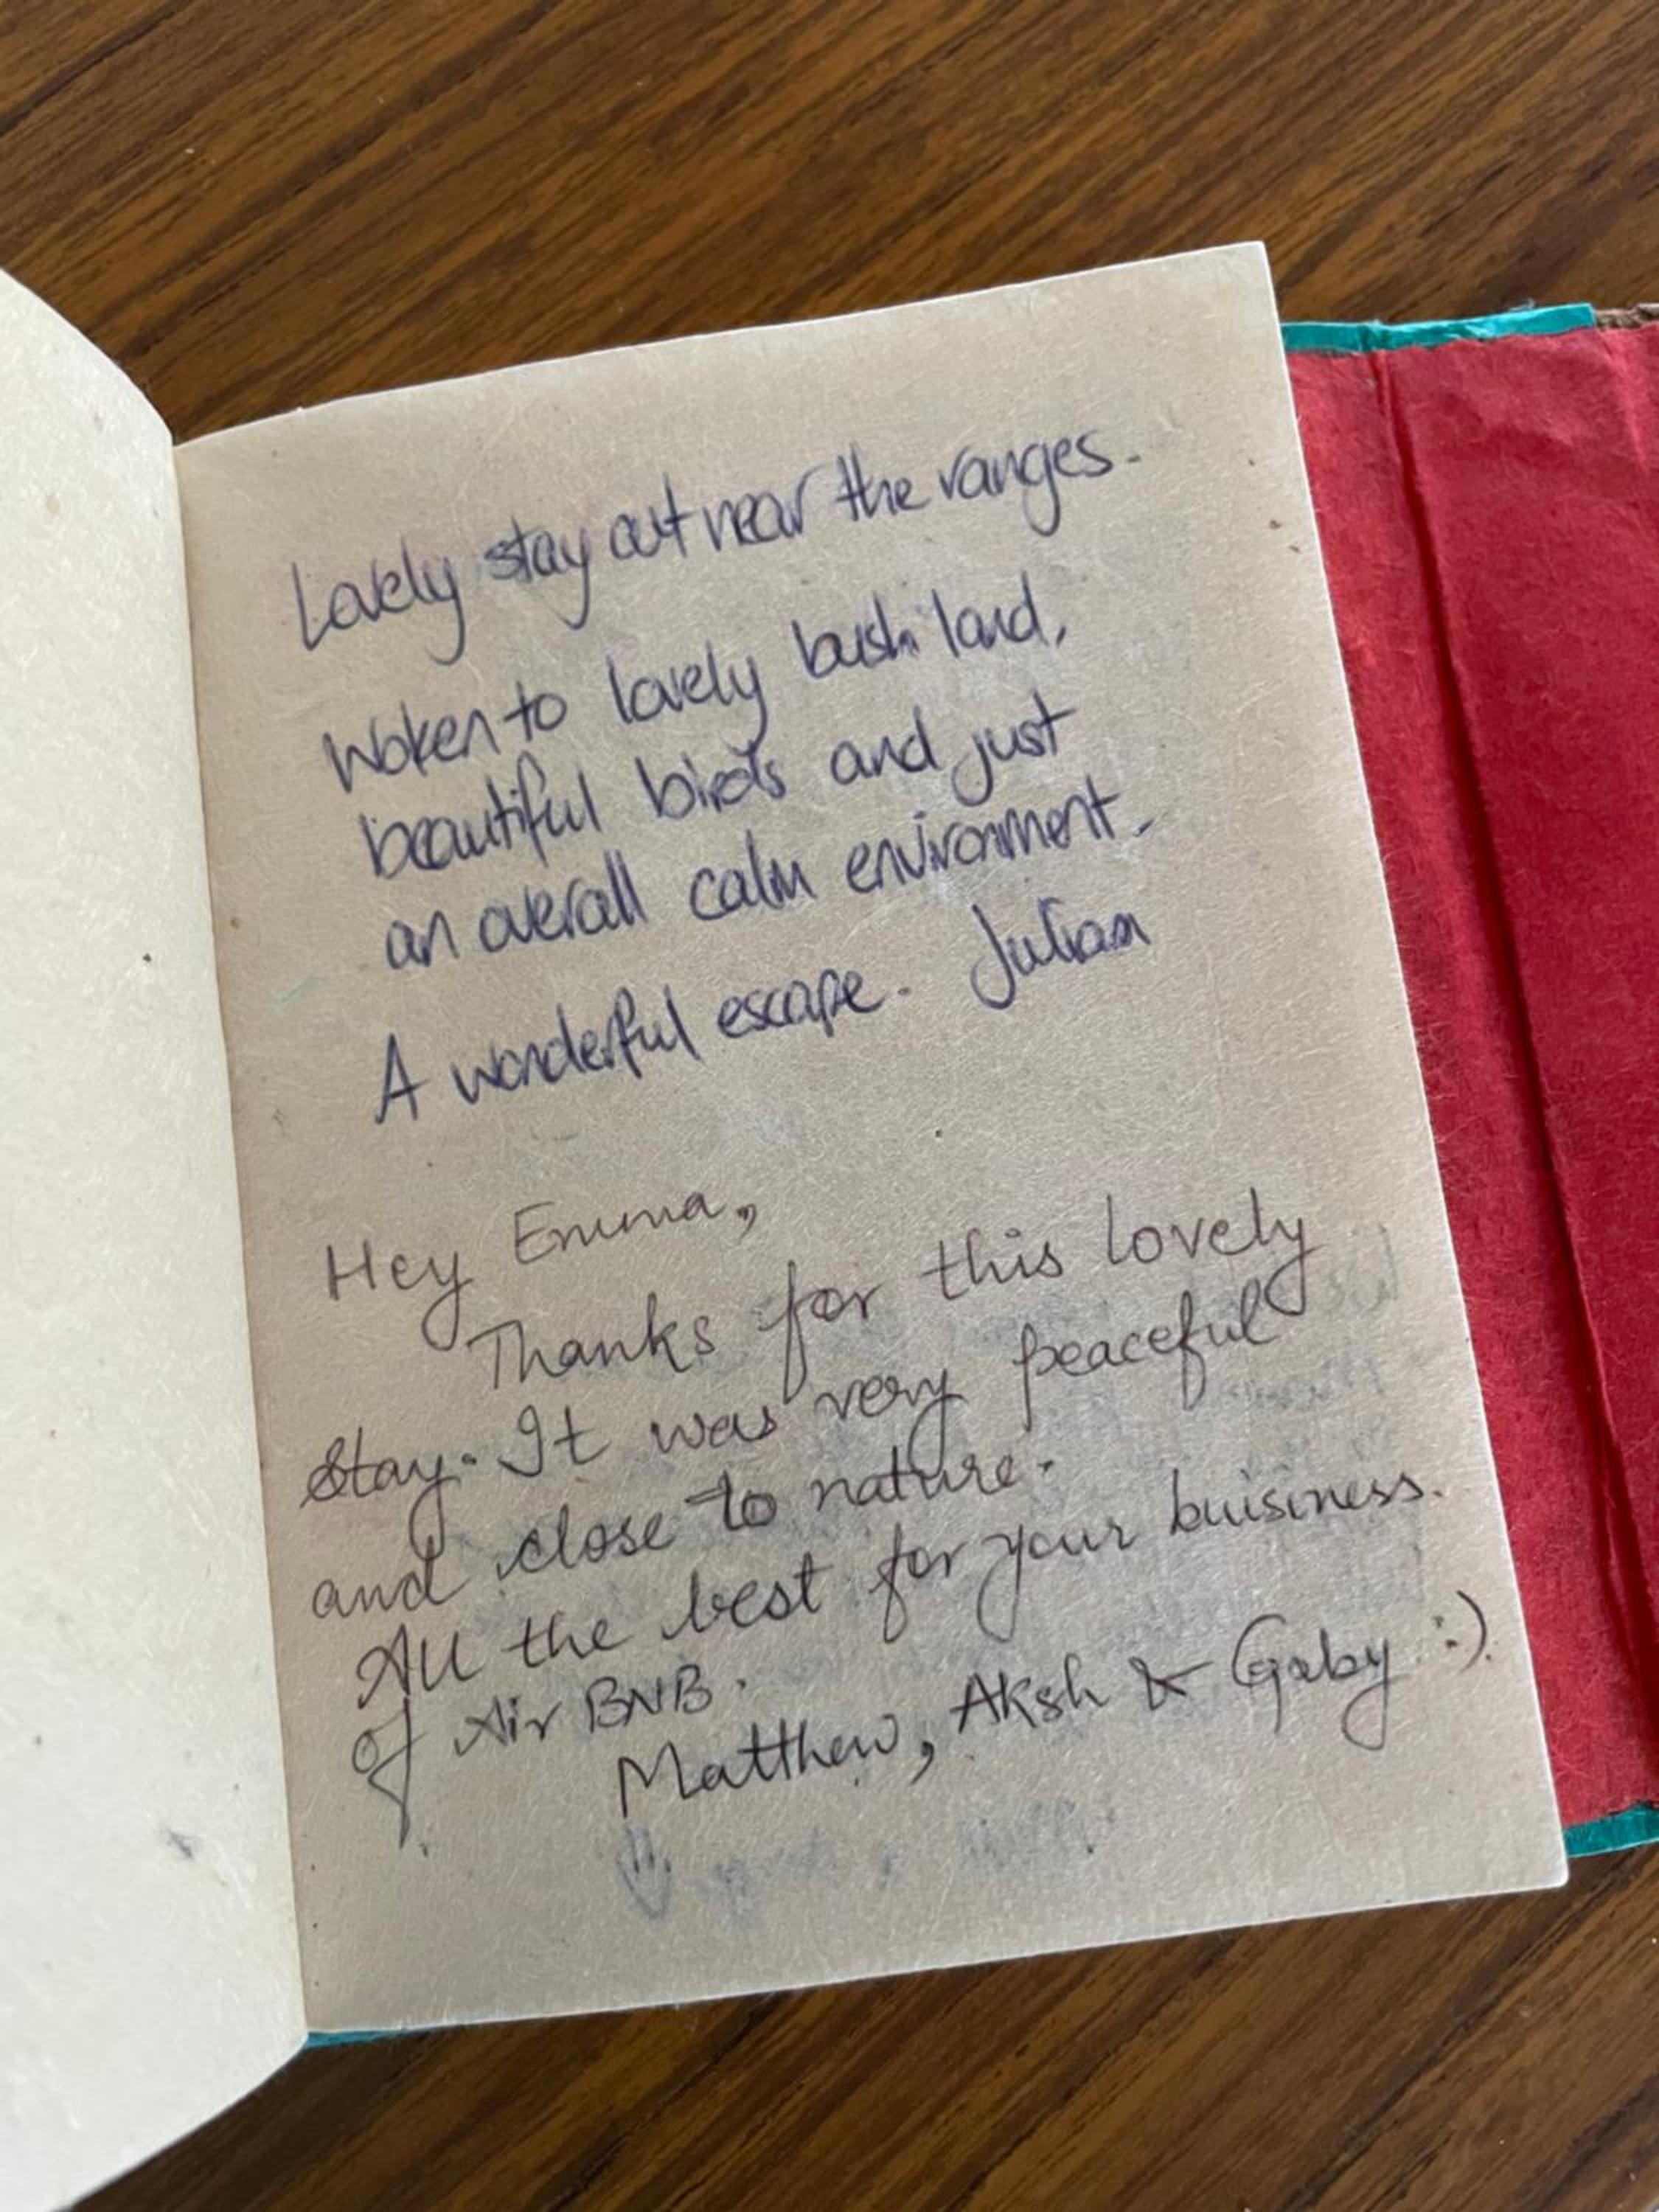 Lovely stay out near the ranges.
Woken to lovely bush land,
beautiful birds and just
an overall calm environment.
A wonderful escape. Julian
Hey Emma,
Thanks for this lovely
stay. It was very peaceful
and close to nature.
All the best for your buisiness.
of Air BNB.
Matthew, Aksh & Gaby :)